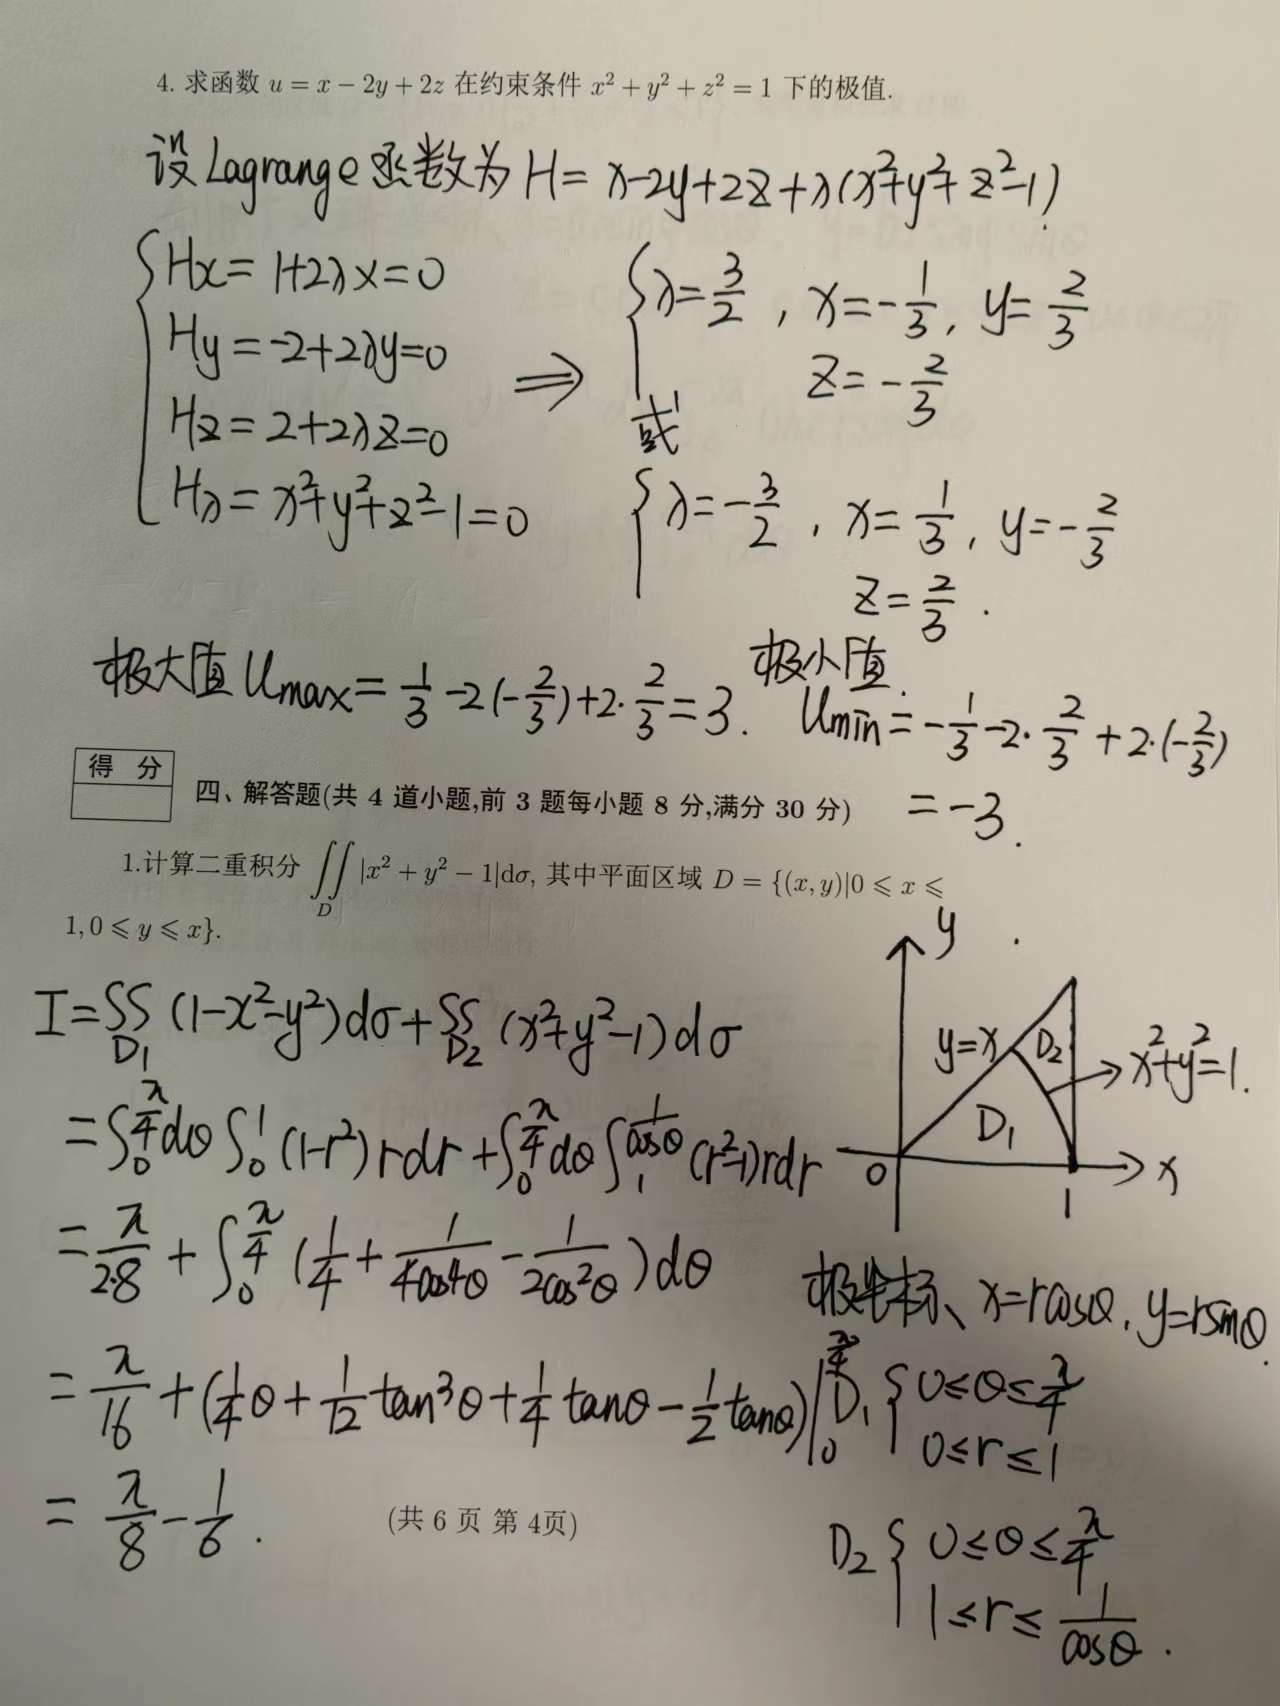 4. 求函数 u = x − 2y + 2z 在约束条件 x² + y² + z² = 1 下的极值.
设Lagrange函数为 H = x-2y+2z+λ(x²+y²+z²-1)
Hx = 1+2λx = 0
Hy = -2+2λy = 0
Hz = 2+2λz = 0
Hλ = x²+y²+z²-1 = 0
⟹
λ = 3/2 , x = -1/3 , y = 2/3
z = -2/3
或
λ = -3/2 , x = 1/3 , y = -2/3
z = 2/3 .
极大值 Umax = 1/3 -2(-2/3)+2·2/3 = 3 .
极小值
Umin = -1/3 -2·2/3 + 2·(-2/3)
= -3 .
得 分
四、解答题(共 4 道小题,前 3 题每小题 8 分,满分 30 分)
1.计算二重积分 ∬_D |x² + y² − 1|dσ, 其中平面区域 D = {(x, y)|0 ⩽ x ⩽
1, 0 ⩽ y ⩽ x}.
I = ∬_D₁ (1-x²-y²)dσ + ∬_D₂ (x²+y²-1)dσ
= ∫₀^(π/4) dθ ∫₀^1 (1-r²)rdr + ∫₀^(π/4) dθ ∫₁^(1/cosθ) (r²-1)rdr
= π/2·8 + ∫₀^(π/4) (1/4 + 1/4cos⁴θ - 1/2cos²θ)dθ
= π/16 + (1/4 θ + 1/12 tan³θ + 1/4 tanθ - 1/2 tanθ)|₀^(π/4)
= π/8 - 1/6 .
y
y=x
D₂
x²+y²=1.
D₁
0
1
x
极坐标、x=rcosθ, y=rsinθ.
D₁ { 0≤θ≤π/4
0≤r≤1
D₂ { 0≤θ≤π/4
1≤r≤1/cosθ .
(共 6 页 第 4页)